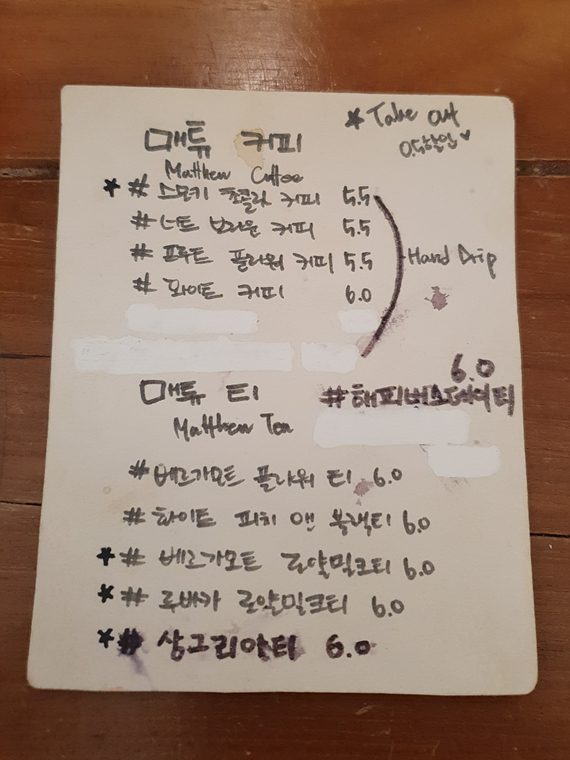 * Take out
0.5할인♥
매튜 커피
Matthew Coffee
* # 스모키 초콜라 커피 5.5
# 너트 브라운 커피 5.5
# 프루트 플라워 커피 5.5
Hand Drip
# 화이트 커피 6.0
6.0
매튜 티
# 해피버스데이티
Matthew Tea
# 베르가모트 플라워 티 6.0
# 화이트 피치 앤 블랙티 6.0
* # 베르가모트 로얄밀크티 6.0
* # 루바카 로얄밀크티 6.0
* # 상그리아티 6.0